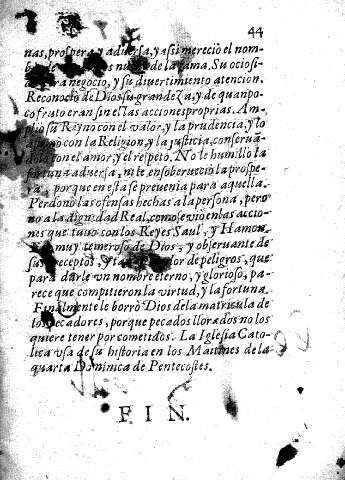 44
nas, prospera y aduersa, y assi mereciò el nom-
de la fama. Su ociosi-
negocio, y su diuertimiento atencion.
Reconocio de Dios su grandeza, y de quan po-
co fruto eran sin ellas acciones proprias. Am-
pliò su Reyno con el valor, y la prudencia, y lo
con la Religion, y la justicia, conseruã-
dolo con el amor, y el respeto. No le humillò la
fortuna aduersa, ni le ensoberueciò la prospe-
ra, porque en esta se preuenia para aquella.
Perdonò las ofensas hechas a la persona, pero
no a la dignidad Real, como se viò en las accio-
nes que tuuo con los Reyes Saul, y Hamon.
muy temeroso de Dios, y obseruante de
sus preceptos, y tan de peligros, que
para darle vn nombre eterno, y glorioso, pa-
rece que compitieron la virtud, y la fortuna.
Finalmente le borrò Dios de la matricula de
los pecadores, porque pecados llorados no los
quiere tener por cometidos. La Iglesia Cato-
lica vsa de su historia en los Maitines de la
quarta Dominica de Pentecostes.
FIN.